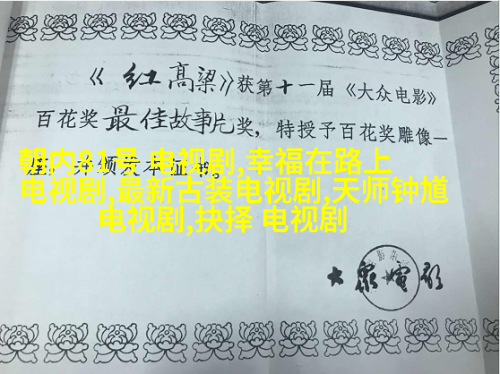 《红高梁》获第十一届《大众电影》
百花奖最佳故事片奖，特授予百花奖雕像一
座，并颁发本证书。
朝内81号 电视剧,幸福在路上
电视剧,最新古装电视剧,天师钟馗
电视剧,抉择 电视剧
大众电影